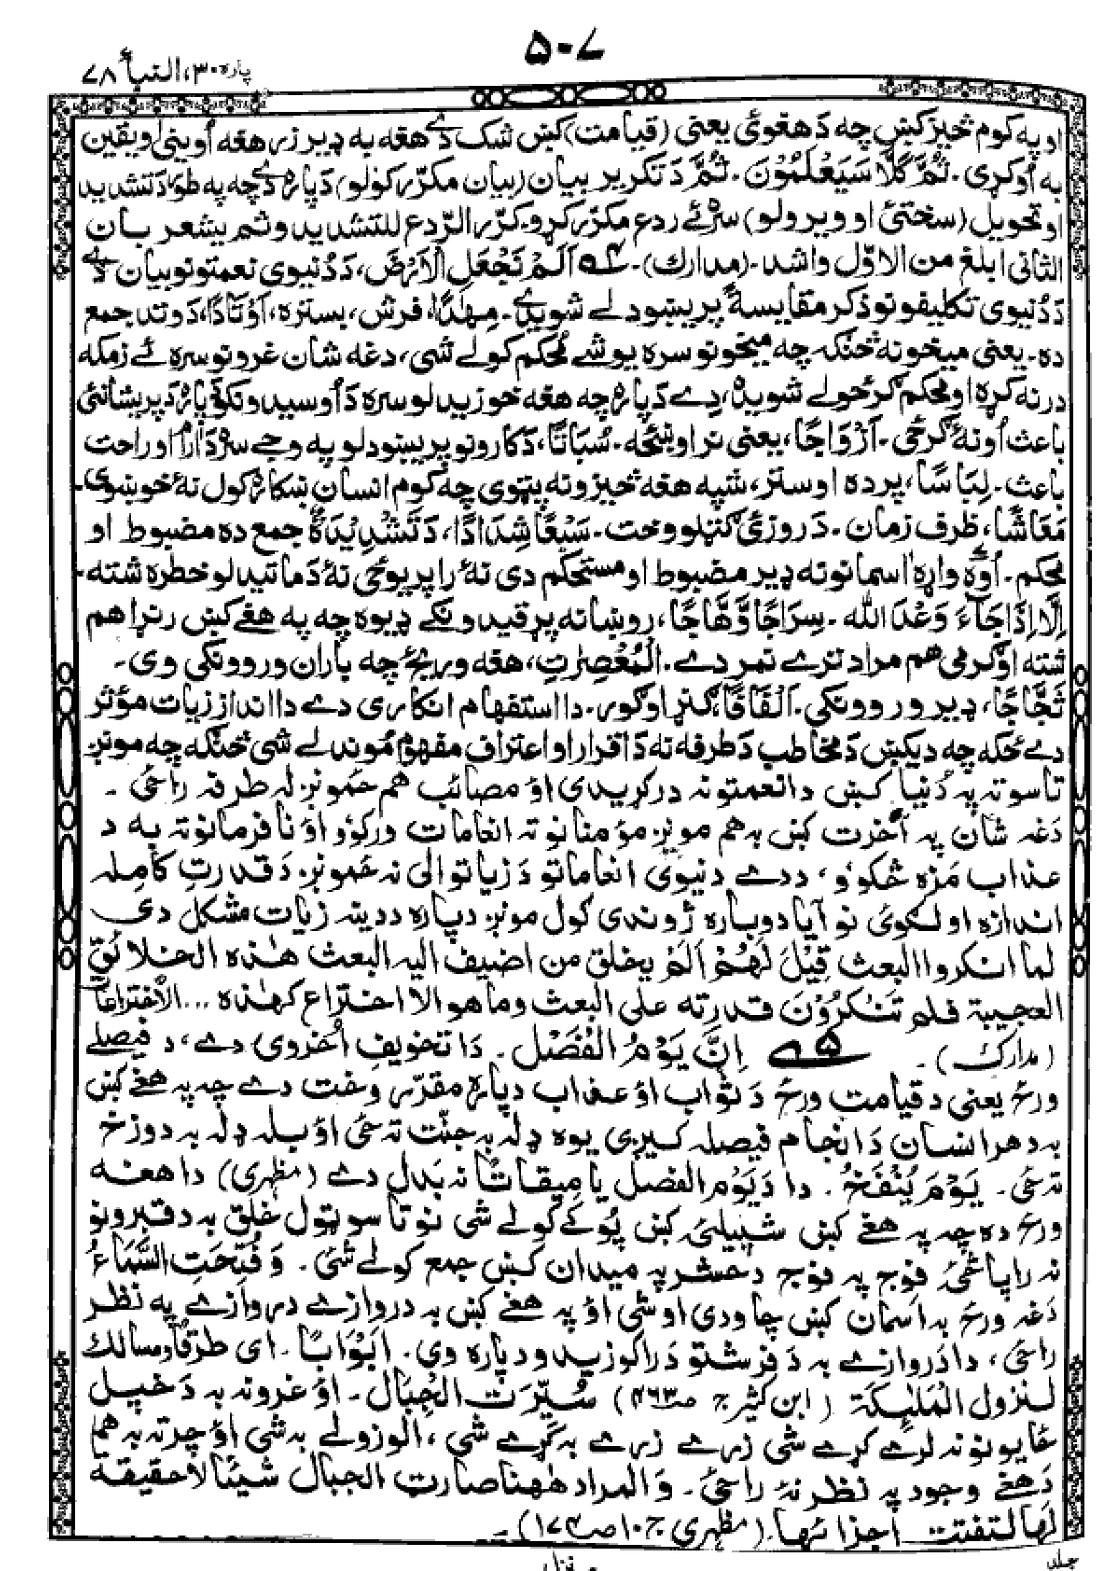 ۵۰۷
پاره ۳۰، النبأ ۷۸
او په کوم څیز کښ چه دَ هغوئ یعنی (قیامت) کښ شک دے هغه به ډیر زر هغه اُوینی او یقین
به اُوکړی. ثُمَّ كَلَّا سَيَعْلَمُوْنَ. ثُمَّ دَ تکریر بیان (بیان مکرّر کولو) دَپاره دے چه په طور دَ تشدید
او تحویل (سختئ او ویرولو) سره ئے ردع مکرّر کړو. کرّر الرّدع للتشدید وثم یشعر بان
الثانی ابلغ من الاوّل واشد. (مدارك). اَلَمْ نَجْعَلِ الْاَرْضَ، دَ دُنیوی نعمتونو بیان دے
دَ دُنیوی تکلیفونو ذکر مقایسةً پریښودلے شویدے. مِهٰدًا، فرش، بستره، اَوْتَادًا، دَ وتد جمع
ده. یعنی میخونه څنګه چه میخونو سره یو شے مُحکم کولے شی، دغه شان غرونو سره ئے زمکه
درنه کړه او محکم کړځولے شویده، دے دَپاره چه هغه خوزیدلو سره دَ اُوسیدونکو دَپاره دَ پریشانئ
باعث اُونهٔ ګرځی. اَزْوَاجًا، یعنی نر او ښځه. سُبَاتًا، دَ کارونو پریښودلو په وجے سره دَ آرام او راحت
باعث. لِبَاسًا، پرده او ستر، شپه هغه څیزونه پټوی چه کوم انسان ښکاره کول نهٔ خوښوی.
مَعَاشًا، ظرف زمان. دَ روزئ ګټلو وخت. سَبْعًا شِدَادًا، دَ شَدِيْدَةٌ جمع ده مضبوط او
محکم. اُوه واړه اسمانونه ډیر مضبوط او مستحکم دی نهٔ راپریوځی نهٔ دَ ماتیدلو خطره شته.
اِلَّا اِذَا جَاءَ وَعْدَ اللّٰه. سِرَاجًا وَّهَّاجًا، روښانه پړقیدونکے ډیوه چه په هغے کښ رنړا هم
شته او ګرمی هم مراد ترے نمر دے. الْمُعْصِرٰتِ، هغه وریځے چه باران وروونکی وی.
ثَجَّاجًا، ډیر وروونکی. اَلْفَافًا، ګنړ او ګور. دا استفهام انکاری دے دا انداز زیات مؤثر
دے ځکه چه دیکښ دَ مخاطب دَ طرفه نه دَ اقرار او اعتراف مفهوم مُوندلے شی څنګه چه مونږ
تاسو ته په دُنیا کښ دا نعمتونه درکړیدی اؤ مصائب هم ځمونږ له طرفه راځی.
دَغه شان په آخرت کښ به هم مونږ مؤمنانو ته انعامات ورکوو اؤ نافرمانو ته به د
عذاب مَزه څکوو، ددے دنیوی انعاماتو دَ زیاتوالی نه ځمونږ دَ قدرتِ کامله
اندازه اولګوئ نو آیا دوباره ژوندی کول مونږ دپاره ددینه زیات مشکل دی
لما انکروا البعث قِيْلَ لَهُمْ اَلَمْ یخلق من اضیف الیه البعث هٰذه الخلائق
العجیبة فلم تُنْکِرُوْنَ قدرته علی البعث وما هو الا اختراع کهٰذه ... الاختراعات
(مدارك). اِنَّ يَوْمَ الْفَصْل. دَا تخویفِ اُخروی دے، د فیصلے
ورځ یعنی د قیامت ورځ دَ ثواب اؤ عذاب دپاره مقرّر وخت دے چه په هغے کښ
به دهر انسان دَ انجام فیصله کیږی یوه ډله به جنّت ته ځی اؤ بله ډله به دوزخ
ته ځی. يَوْمَ يُنْفَخُ. دا دَ يَوْمَ الفصل یا مِيقاتًا نه بدل دے (مظهری) دا هغه
ورځ ده چه په هغے کښ شپیلئ کښ پُوکے کولے شی نو تاسو ټول خلق به د قبرونو
نه راپاڅئ فوج په فوج دَ حشر په میدان کښ جمع کولے شئ. وَفُتِحَتِ السَّمَاءُ
دَغه ورځ به اسمان کښ چاودی اوشی اؤ په هغے کښ به دروازے دروازے په نظر
راځی، دا دروازے به دَ فرشتو دَ راکوزیدو دپاره وی. اَبْوَابًا. ای طرقًا ومسالك
لنزول الْمَلٰئِكَة (ابن کثیر ج ۴ صـ۴۶۳) سُيِّرَتِ الْجِبَال. اؤ غرونه به دَ خپل
ځایونو نه لرے کړے شی زرے زرے به کړے شی، الوزولے به شی اؤ چرته به هم
دَ هغے وجود په نظر نهٔ راځی. وَالمراد هٰهنا صارت الجبال شیئا لا حقیقة
لَها لتفتت اجزائها. (مظهری ج ۱۰ صـ۱۷۴)
منزل
جلد